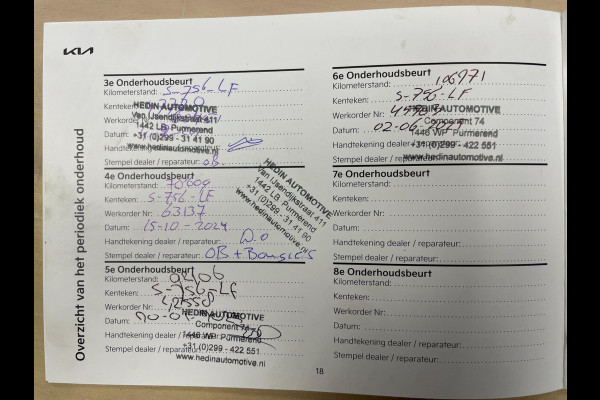 KIA
Overzicht van het periodiek onderhoud
3e Onderhoudsbeurt
Kilometerstand:
Kenteken: S-756-LF
Werkorder Nr:
Datum:
Handtekening dealer / reparateur:
Stempel dealer / reparateur: OB.
HEDIN AUTOMOTIVE
Van IJsendijkstraat 411
1442 LB Purmerend
+31 (0)299 - 31 41 90
www.hedinautomotive.nl
4e Onderhoudsbeurt
Kilometerstand:
Kenteken: S-756-LF
Werkorder Nr: 63137
Datum: 15-10-2024
Handtekening dealer / reparateur:
Stempel dealer / reparateur: OB +
HEDIN AUTOMOTIVE
Van IJsendijkstraat 411
1442 LB Purmerend
+31 (0)299 - 31 41 90
www.hedinautomotive.nl
5e Onderhoudsbeurt
Kilometerstand:
Kenteken: S-756-LF
Werkorder Nr:
Datum:
Handtekening dealer / reparateur:
Stempel dealer / reparateur:
HEDIN AUTOMOTIVE
Component 74
1446 WP Purmerend
+31 (0)299 - 422 551
www.hedinautomotive.nl
6e Onderhoudsbeurt
Kilometerstand: 106971
Kenteken: S-756-LF
Werkorder Nr:
Datum:
Handtekening dealer / reparateur:
Stempel dealer / reparateur:
HEDIN AUTOMOTIVE
Component 74
1446 WP Purmerend
+31 (0)299 - 422 551
www.hedinautomotive.nl
7e Onderhoudsbeurt
Kilometerstand:
Kenteken:
Werkorder Nr:
Datum:
Handtekening dealer / reparateur:
Stempel dealer / reparateur:
8e Onderhoudsbeurt
Kilometerstand:
Kenteken:
Werkorder Nr:
Datum:
Handtekening dealer / reparateur:
Stempel dealer / reparateur:
18